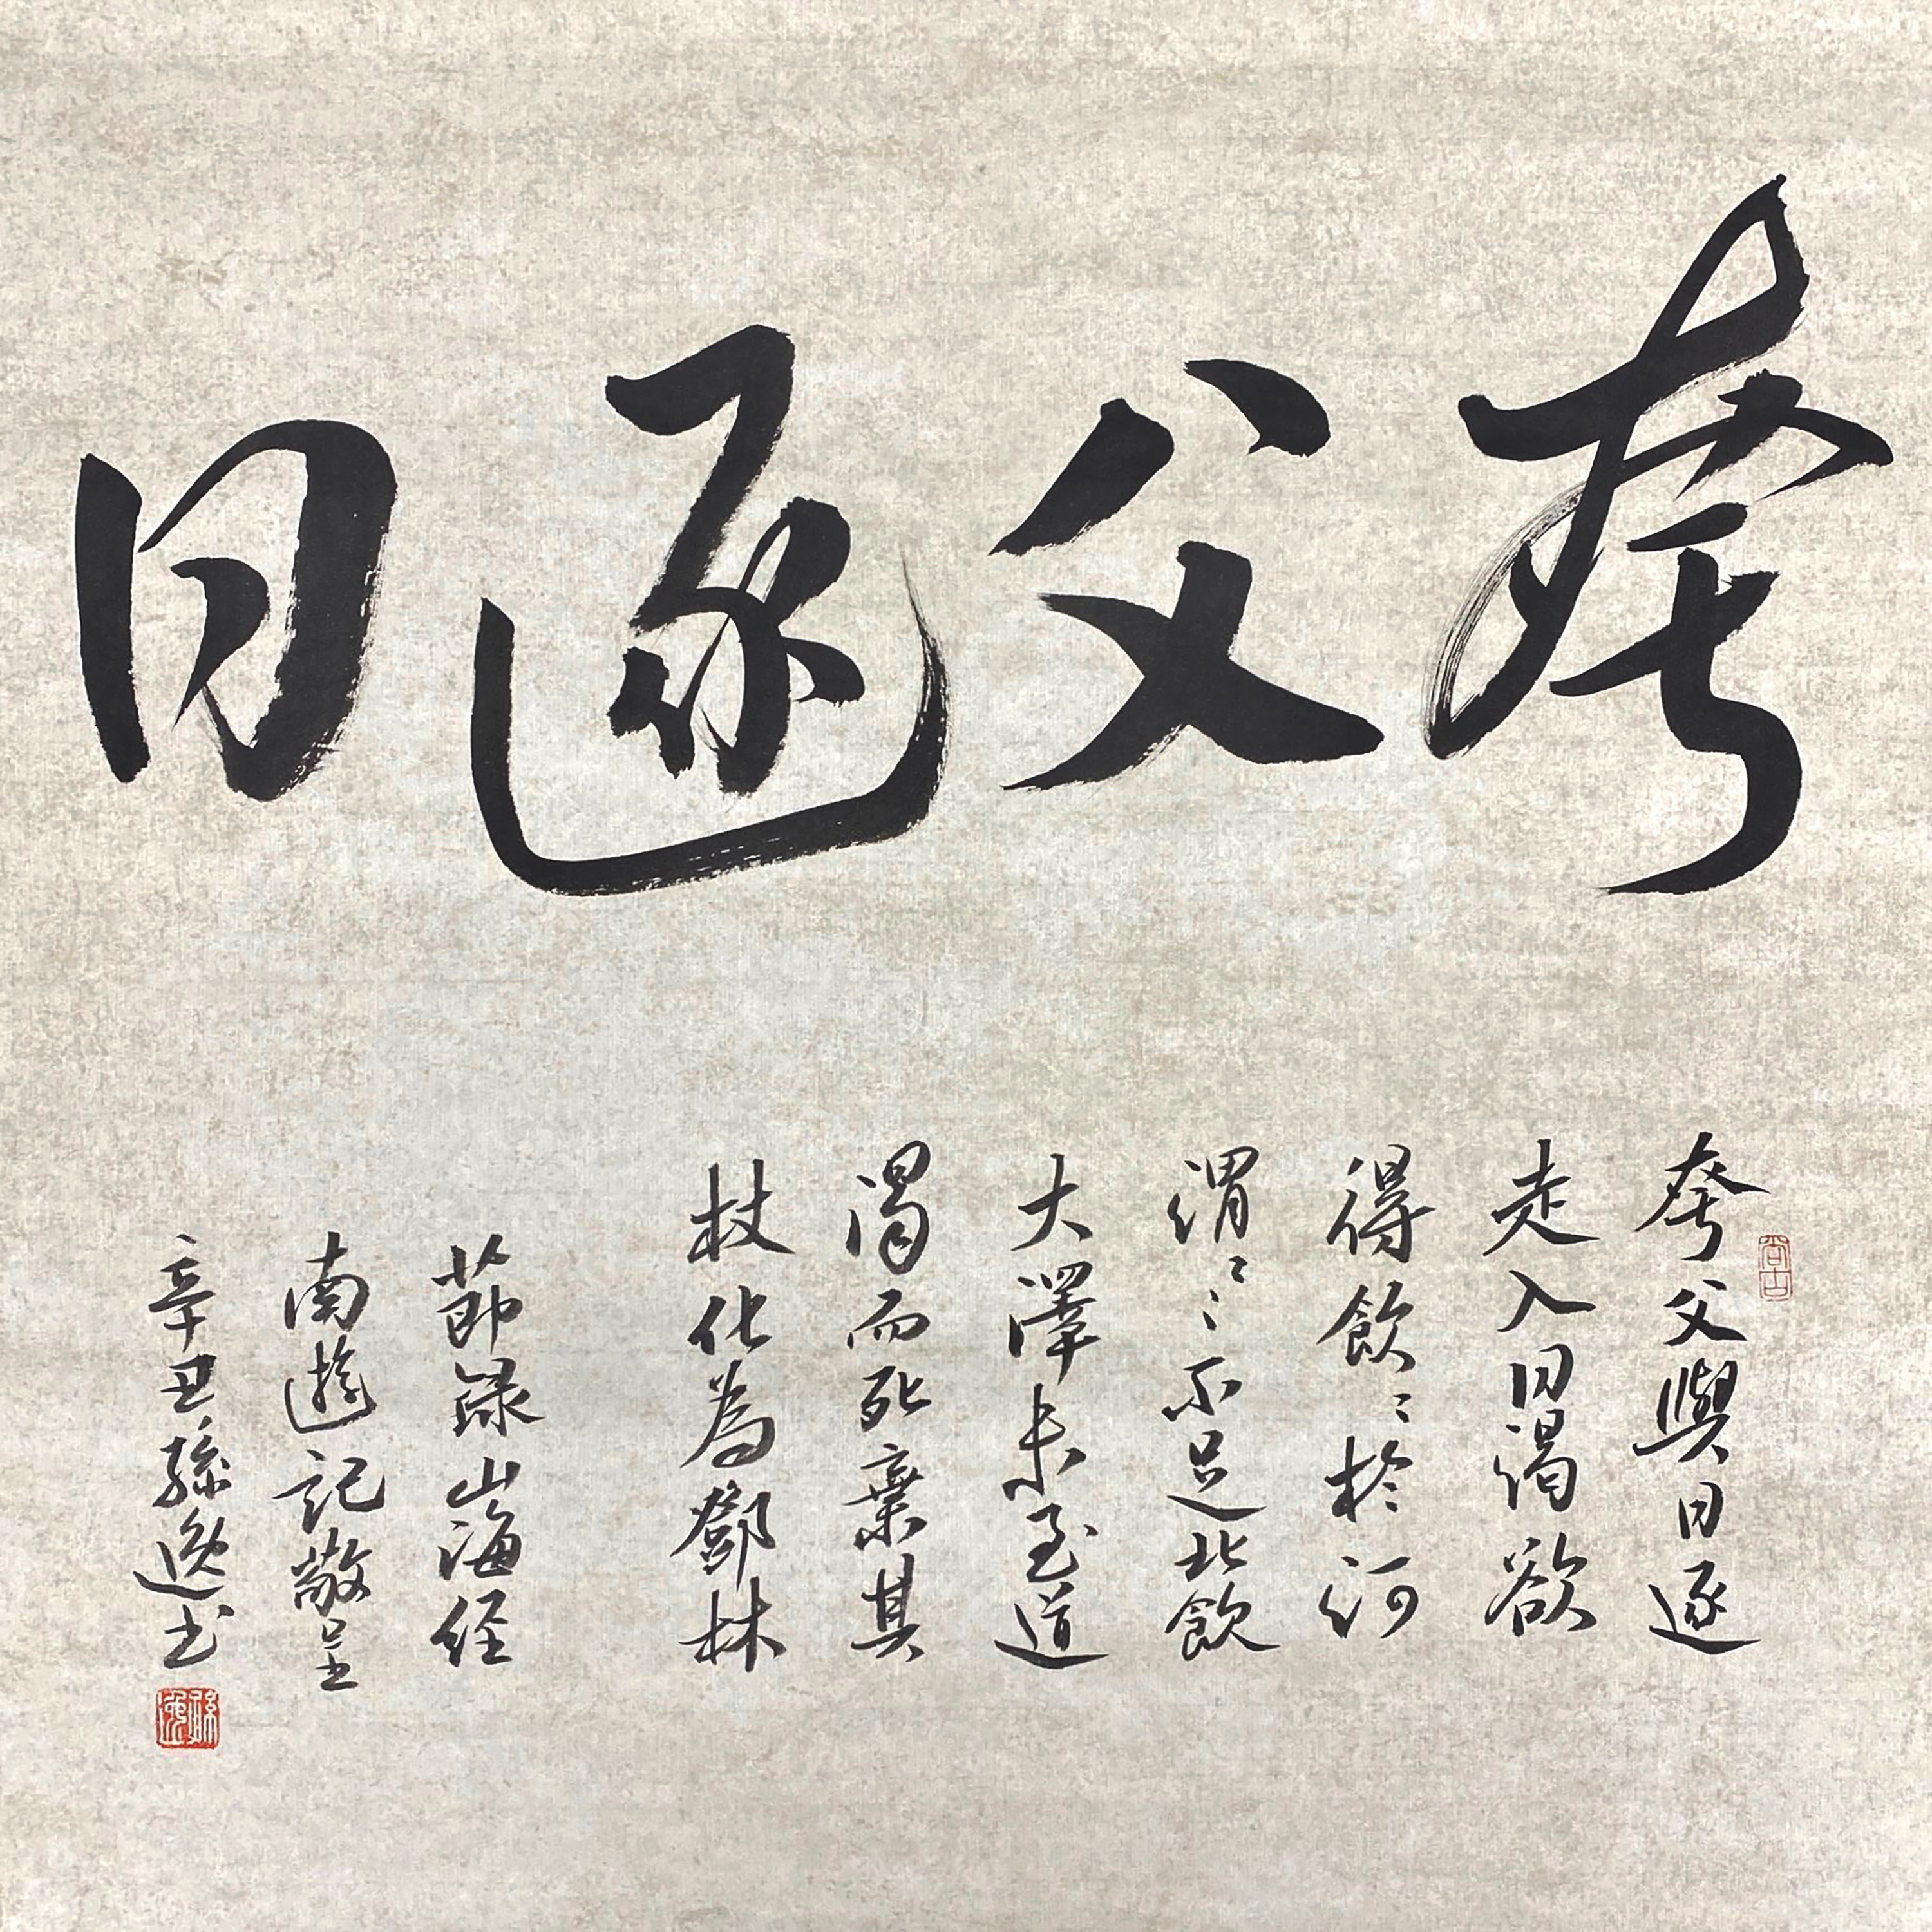 夸父逐日
夸父與日逐
走入日渴欲
得飲〻於河
渭〻〻不足北飲
大澤未至道
渴而死棄其
杖化為鄧林
節録山海经
南遊記敬呈
辛丑孫逸书
孫逸